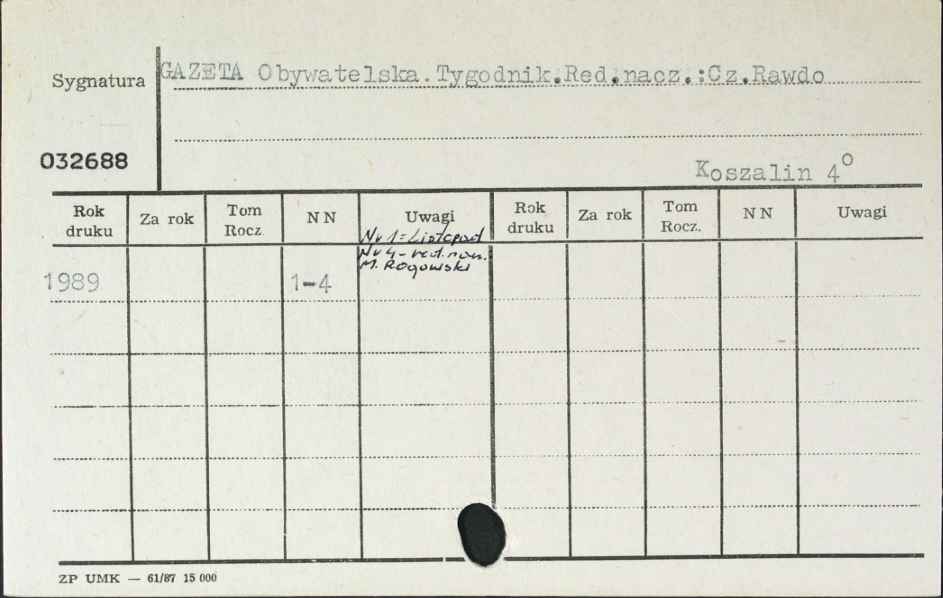 Sygnatura
GAZETA Obywatelska.Tygodnik.Red.nacz.:Cz.Rawdo
032688
Koszalin 4°
Rok druku Za rok Tom Rocz. NN Uwagi Rok druku Za rok Tom Rocz. NN Uwagi
Nr 1=Listopad
Nr 4-red. nacz.
M. Rogowski
1989 1-4
ZP UMK — 61/87 15 000